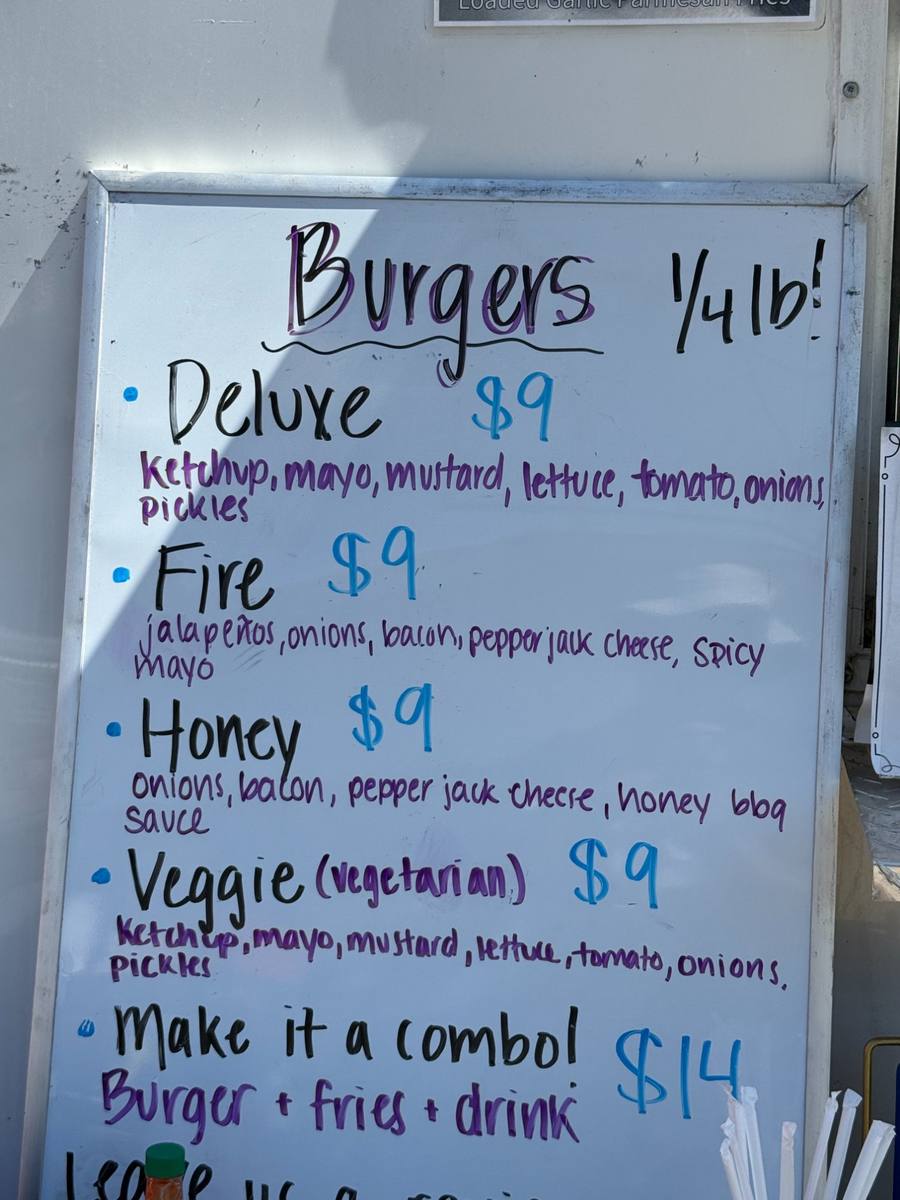 Loaded Garlic Parmesan Fries
Burgers 1/4 lb!
• Deluxe $9
Ketchup, mayo, mustard, lettuce, tomato, onions,
pickles
• Fire $9
jalapeños, onions, bacon, pepper jack cheese, spicy
mayo
• Honey $9
onions, bacon, pepper jack cheese, honey bbq
sauce
• Veggie (vegetarian) $9
Ketchup, mayo, mustard, lettuce, tomato, onions,
pickles
• Make it a combo! $14
Burger + fries + drink
Leave us a